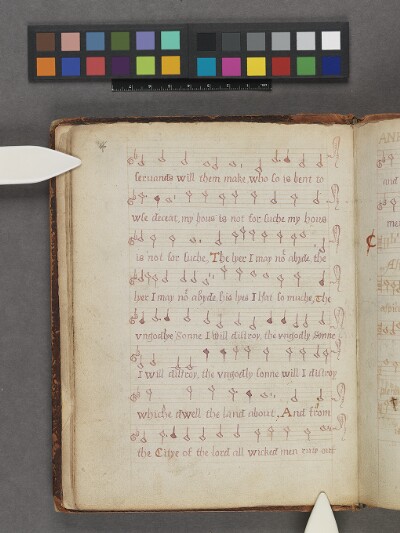 servandes will them make, who so is bent to
use deceat, my hous is not for suche my hous
is not for suche, The lyer I may not abyde, the
lyer I may not abyde, his lyes I Hat so muche, The
vngodlye sonne I will distroy, the vngodly sonne
I will distroy, the vngodly sonne will I distroy
whiche dwell the land about, And from
the Citye of the lord all wicked men